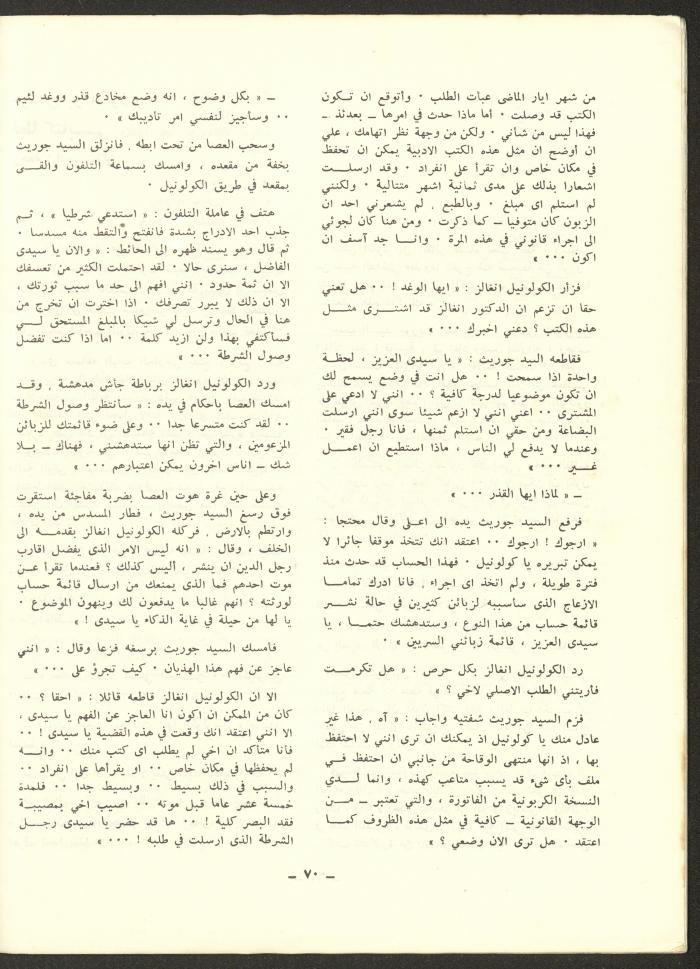 من شهر ايار الماضى عبات الطلب ٠ وأتوقع ان تكون
الكتب قد وصلت ٠ أما ماذا حدث في امرها ــ بعدئذ ــ
فهذا ليس من شأني ٠ ولكن من وجهة نظر اتهامك ، علي
ان أوضح ان مثل هذه الكتب الادبية يمكن ان تحفظ
في مكان خاص وان تقرأ على انفراد ٠ وقد ارسلت
اشعارا بذلك على مدى ثمانية اشهر متتالية ٠ ولكنني
لم استلم اى مبلغ ٠ وبالطبع ، لم يشعرني احد ان
الزبون كان متوفيا ــ كما ذكرت ٠ ومن هنا كان لجوئي
الى اجراء قانوني في هذه المرة ٠ وانا جد آسف ان
اكون ٠٠٠ »
فزأر الكولونيل انغالز : « ايها الوغد ! ٠٠ هل تعني
حقا ان تزعم ان الدكتور انغالز قد اشترى مثل
هذه الكتب ؟ دعني اخبرك ٠٠٠ »
فقاطعه السيد جوريث : « يا سيدى العزيز ، لحظة
واحدة اذا سمحت ! ٠٠ هل انت في وضع يسمح لك
ان تكون موضوعيا لدرجة كافية ؟ ٠٠ انني لا ادعي على
المشترى ٠٠ اعني انني لا ازعم شيئا سوى انني ارسلت
البضاعة ومن حقي ان استلم ثمنها ، فانا رجل فقير ٠
وعندما لا يدفع لي الناس ، ماذا استطيع ان اعمل
غير ٠٠٠ »
ــ « لماذا ايها القذر ٠٠٠ »
فرفع السيد جوريث يده الى اعلى وقال محتجا :
« ارجوك ! ارجوك ٠٠ اعتقد انك تتخذ موقفا جائرا لا
يمكن تبريره يا كولونيل ٠ فهذا الحساب قد حدث منذ
فترة طويلة ، ولم اتخذ اى اجراء ، فانا ادرك تماما
الازعاج الذى سأسببه لزبائن كثيرين في حالة نشر
قائمة حساب من هذا النوع ، وستدهشك حتما ، يا
سيدى العزيز ، قائمة زبائني السريين ٠
رد الكولونيل انغالز بكل حرص : « هل تكرمت
فأريتني الطلب الاصلي لاخي ؟ »
فزم السيد جوريث شفتيه واجاب : « آه ، هذا غير
عادل منك يا كولونيل اذ يمكنك ان ترى انني لا احتفظ
بها ، اذ انها منتهى الوقاحة من جانبي ان احتفظ في
ملف بأى شىء قد يسبب متاعب كهذه ، وانما لدي
النسخة الكربونية من الفاتورة ، والتي تعتبر ــ من
الوجهة القانونية ــ كافية في مثل هذه الظروف كما
اعتقد ٠ هل ترى الان وضعي ؟ »
ــ « بكل وضوح ، انه وضع مخادع قذر ووغد لئيم
٠٠ وسأجيز لنفسي امر تأديبك » ٠
وسحب العصا من تحت ابطه ، فانزلق السيد جوريث
بخفة من مقعده ، وامسك بسماعة التلفون والقى
بمقعد في طريق الكولونيل ٠
هتف في عاملة التلفون : « استدعي شرطيا » ، ثم
جذب احد الادراج بشدة فانفتح والتقط منه مسدسا ٠
ثم قال وهو يسند ظهره الى الحائط : « والان يا سيدى
الفاضل ، سنرى حالا ٠ لقد احتملت الكثير من تعسفك
الا ان ثمة حدود ٠ انني افهم الى حد ما سبب ثورتك ،
الا ان ذلك لا يبرر تصرفك ٠ اذا اخترت ان تخرج من
هنا في الحال وترسل لي شيكا بالمبلغ المستحق لي
فسأكتفي بهذا ولن ازيد كلمة ٠٠ اما اذا كنت تفضل
وصول الشرطة ٠٠٠ »
ورد الكولونيل انغالز برباطة جاش مدهشة ، وقد
امسك العصا باحكام في يده : « سأنتظر وصول الشرطة
٠٠ لقد كنت متسرعا جدا ٠٠ وعلى ضوء قائمتك للزبائن
المزعومين ، والتي تظن انها ستدهشني ، فهناك ــ بلا
شك ــ اناس اخرون يمكن اعتبارهم ٠٠٠ »
وعلى حين غرة هوت العصا بضربة مفاجئة استقرت
فوق رسغ السيد جوريث ، فطار المسدس من يده ،
وارتطم بالارض ، فركله الكولونيل انغالز بقدمه الى
الخلف ، وقال : « انه ليس الامر الذى يفضل اقارب
رجل الدين ان ينشر ، أليس كذلك ؟ فعندما تقرأ عن
موت احدهم فما الذى يمنعك من ارسال قائمة حساب
لورثته ؟ انهم غالبا ما يدفعون لك وينهون الموضوع ٠
يا لها من حيلة في غاية الذكاء يا سيدى ! »
فامسك السيد جوريث برسغه فزعا وقال : « انني
عاجز عن فهم هذا الهذيان ٠ كيف تجرؤ على ٠٠٠ »
الا ان الكولونيل انغالز قاطعه قائلا : « احقا ؟ ٠٠
كان من الممكن ان اكون انا العاجز عن الفهم يا سيدى ،
الا انني اعتقد انك وقعت في هذه القضية يا سيدى ! ٠٠
فانا متأكد ان اخي لم يطلب اى كتب منك ٠٠ وانه
لم يحفظها في مكان خاص ٠٠ او يقرأها على انفراد ٠٠
والسبب في ذلك بسيط ٠٠ وبسيط جدا ٠٠ فلمدة
خمسة عشر عاما قبل موته ٠٠ اصيب اخي بمصيبة
فقد البصر كلية ! ٠٠ ها قد حضر يا سيدى رجل
الشرطة الذى ارسلت في طلبه ! ٠٠٠ »
ــ ٧٠ ــ